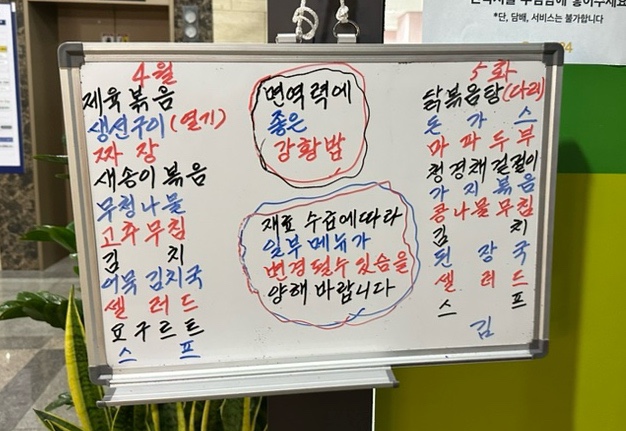 *단, 담배, 서비스는 불가합니다
4월
제육볶음
생선구이(열기)
짜장
새송이볶음
무청나물
고추무침
김치
어묵김치국
샐러드
요구르트
스프
면역력에
좋은
강황밥
재료 수급에따라
일부메뉴가
변경될수있습을
양해바랍니다
5화
닭볶음탕(다리)
돈가스
마파두부
청경채겉절이
가지볶음
콩나물무침
김치
된장국
샐러드
스프
김